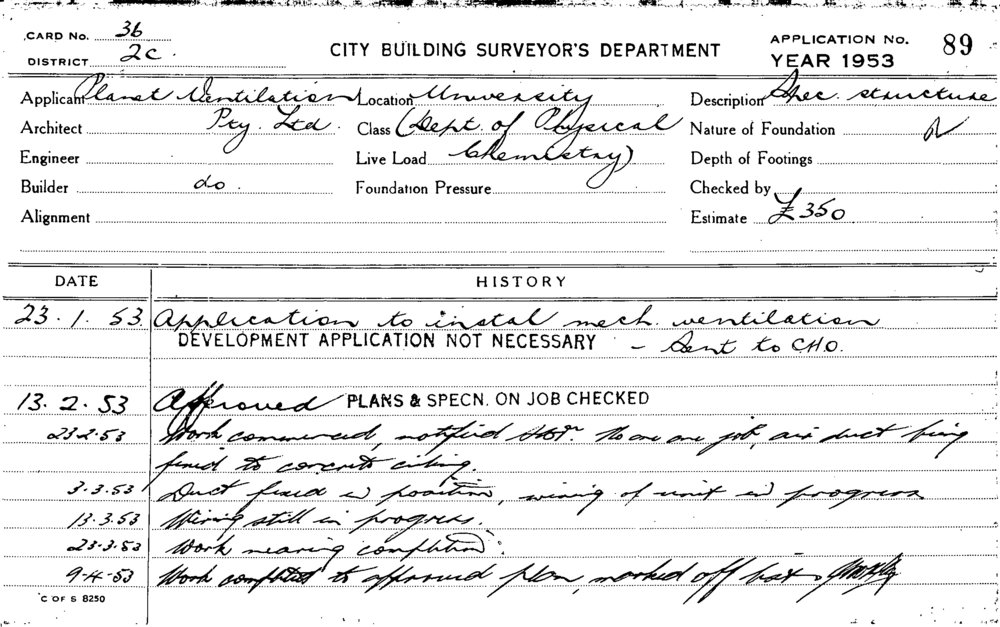 CARD No. 36
DISTRICT 2c.
CITY BUILDING SURVEYOR'S DEPARTMENT
APPLICATION No. 89
YEAR 1953
Applicant Planet Ventilation Location University Description Spec. structure
Architect Pty. Ltd. Class (Dept. of Physical Nature of Foundation
Engineer Live Load Chemistry) Depth of Footings
Builder do. Foundation Pressure Checked by
Alignment Estimate £350
DATE HISTORY
23.1.53. Application to instal mech. ventilation
DEVELOPMENT APPLICATION NOT NECESSARY - Sent to CHO.
13.2.53 Approved PLANS & SPECN. ON JOB CHECKED
23.2.53 Work commenced, notified No one on job, air duct being
fixed to concrete ceiling.
3.3.53 Duct fixed in position, wiring of unit in progress
13.3.53 Wiring still in progress.
23.3.53 Work nearing completion.
9-4-53 Work completed to approved plan, marked off
C OF S 8250